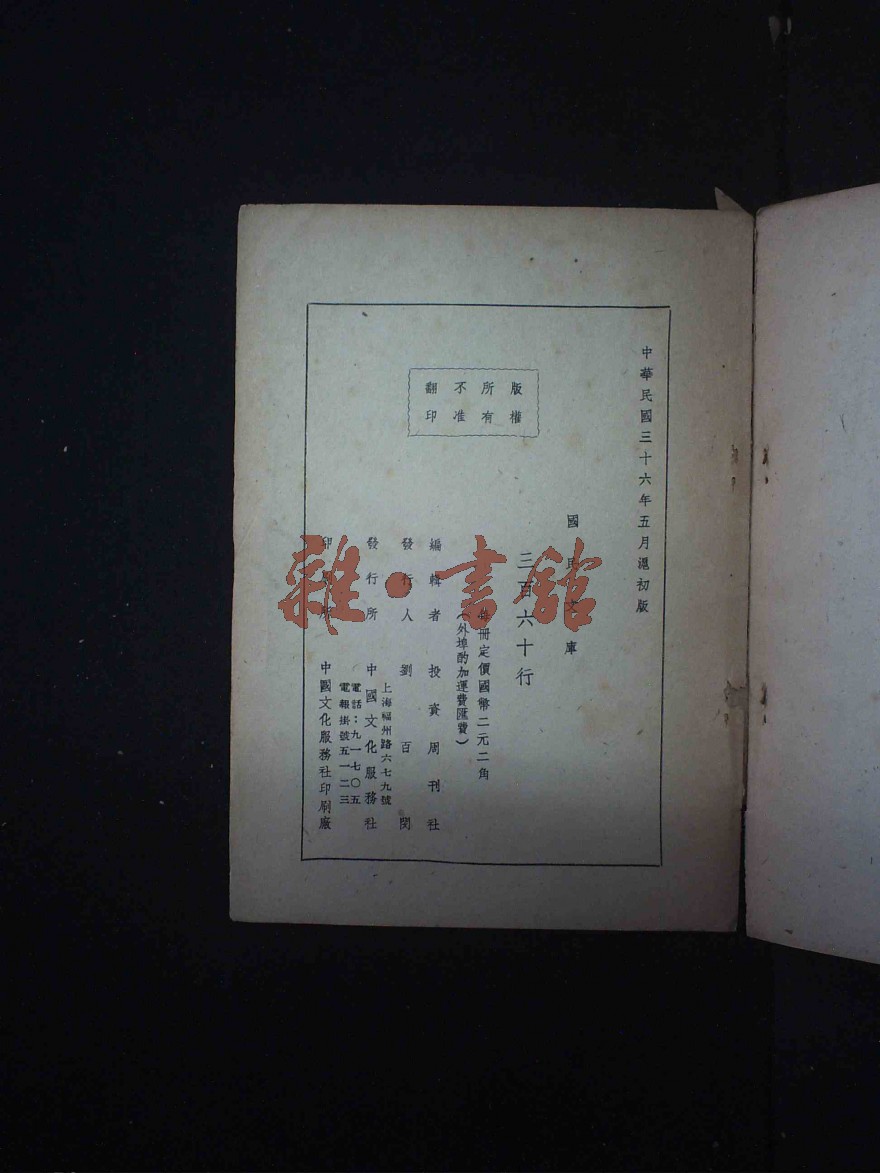 中華民國三十六年五月滬初版
國民文庫
三百六十行
每冊定價國幣二元二角
（外埠酌加運費匯費）
版權
所有
不准
翻印
編輯者 投資周刊社
發行人 劉百閔
發行所 中國文化服務社
上海福州路六七九號
電話：九一七〇五
電報掛號五一二三
印刷所 中國文化服務社印刷廠
雜·書館